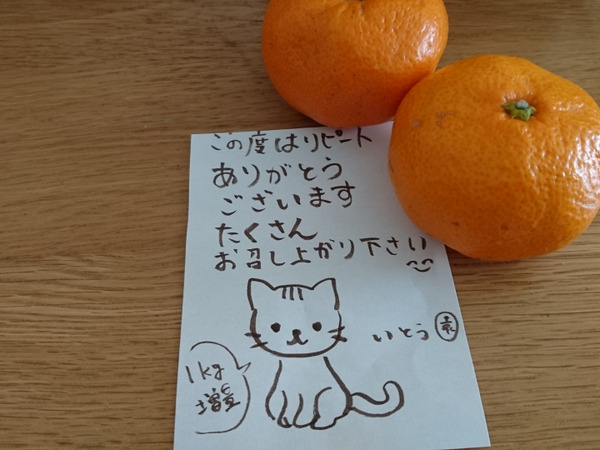 この度はリピート
ありがとう
ございます
たくさん
お召し上がり下さい
いとう
1kg
増量